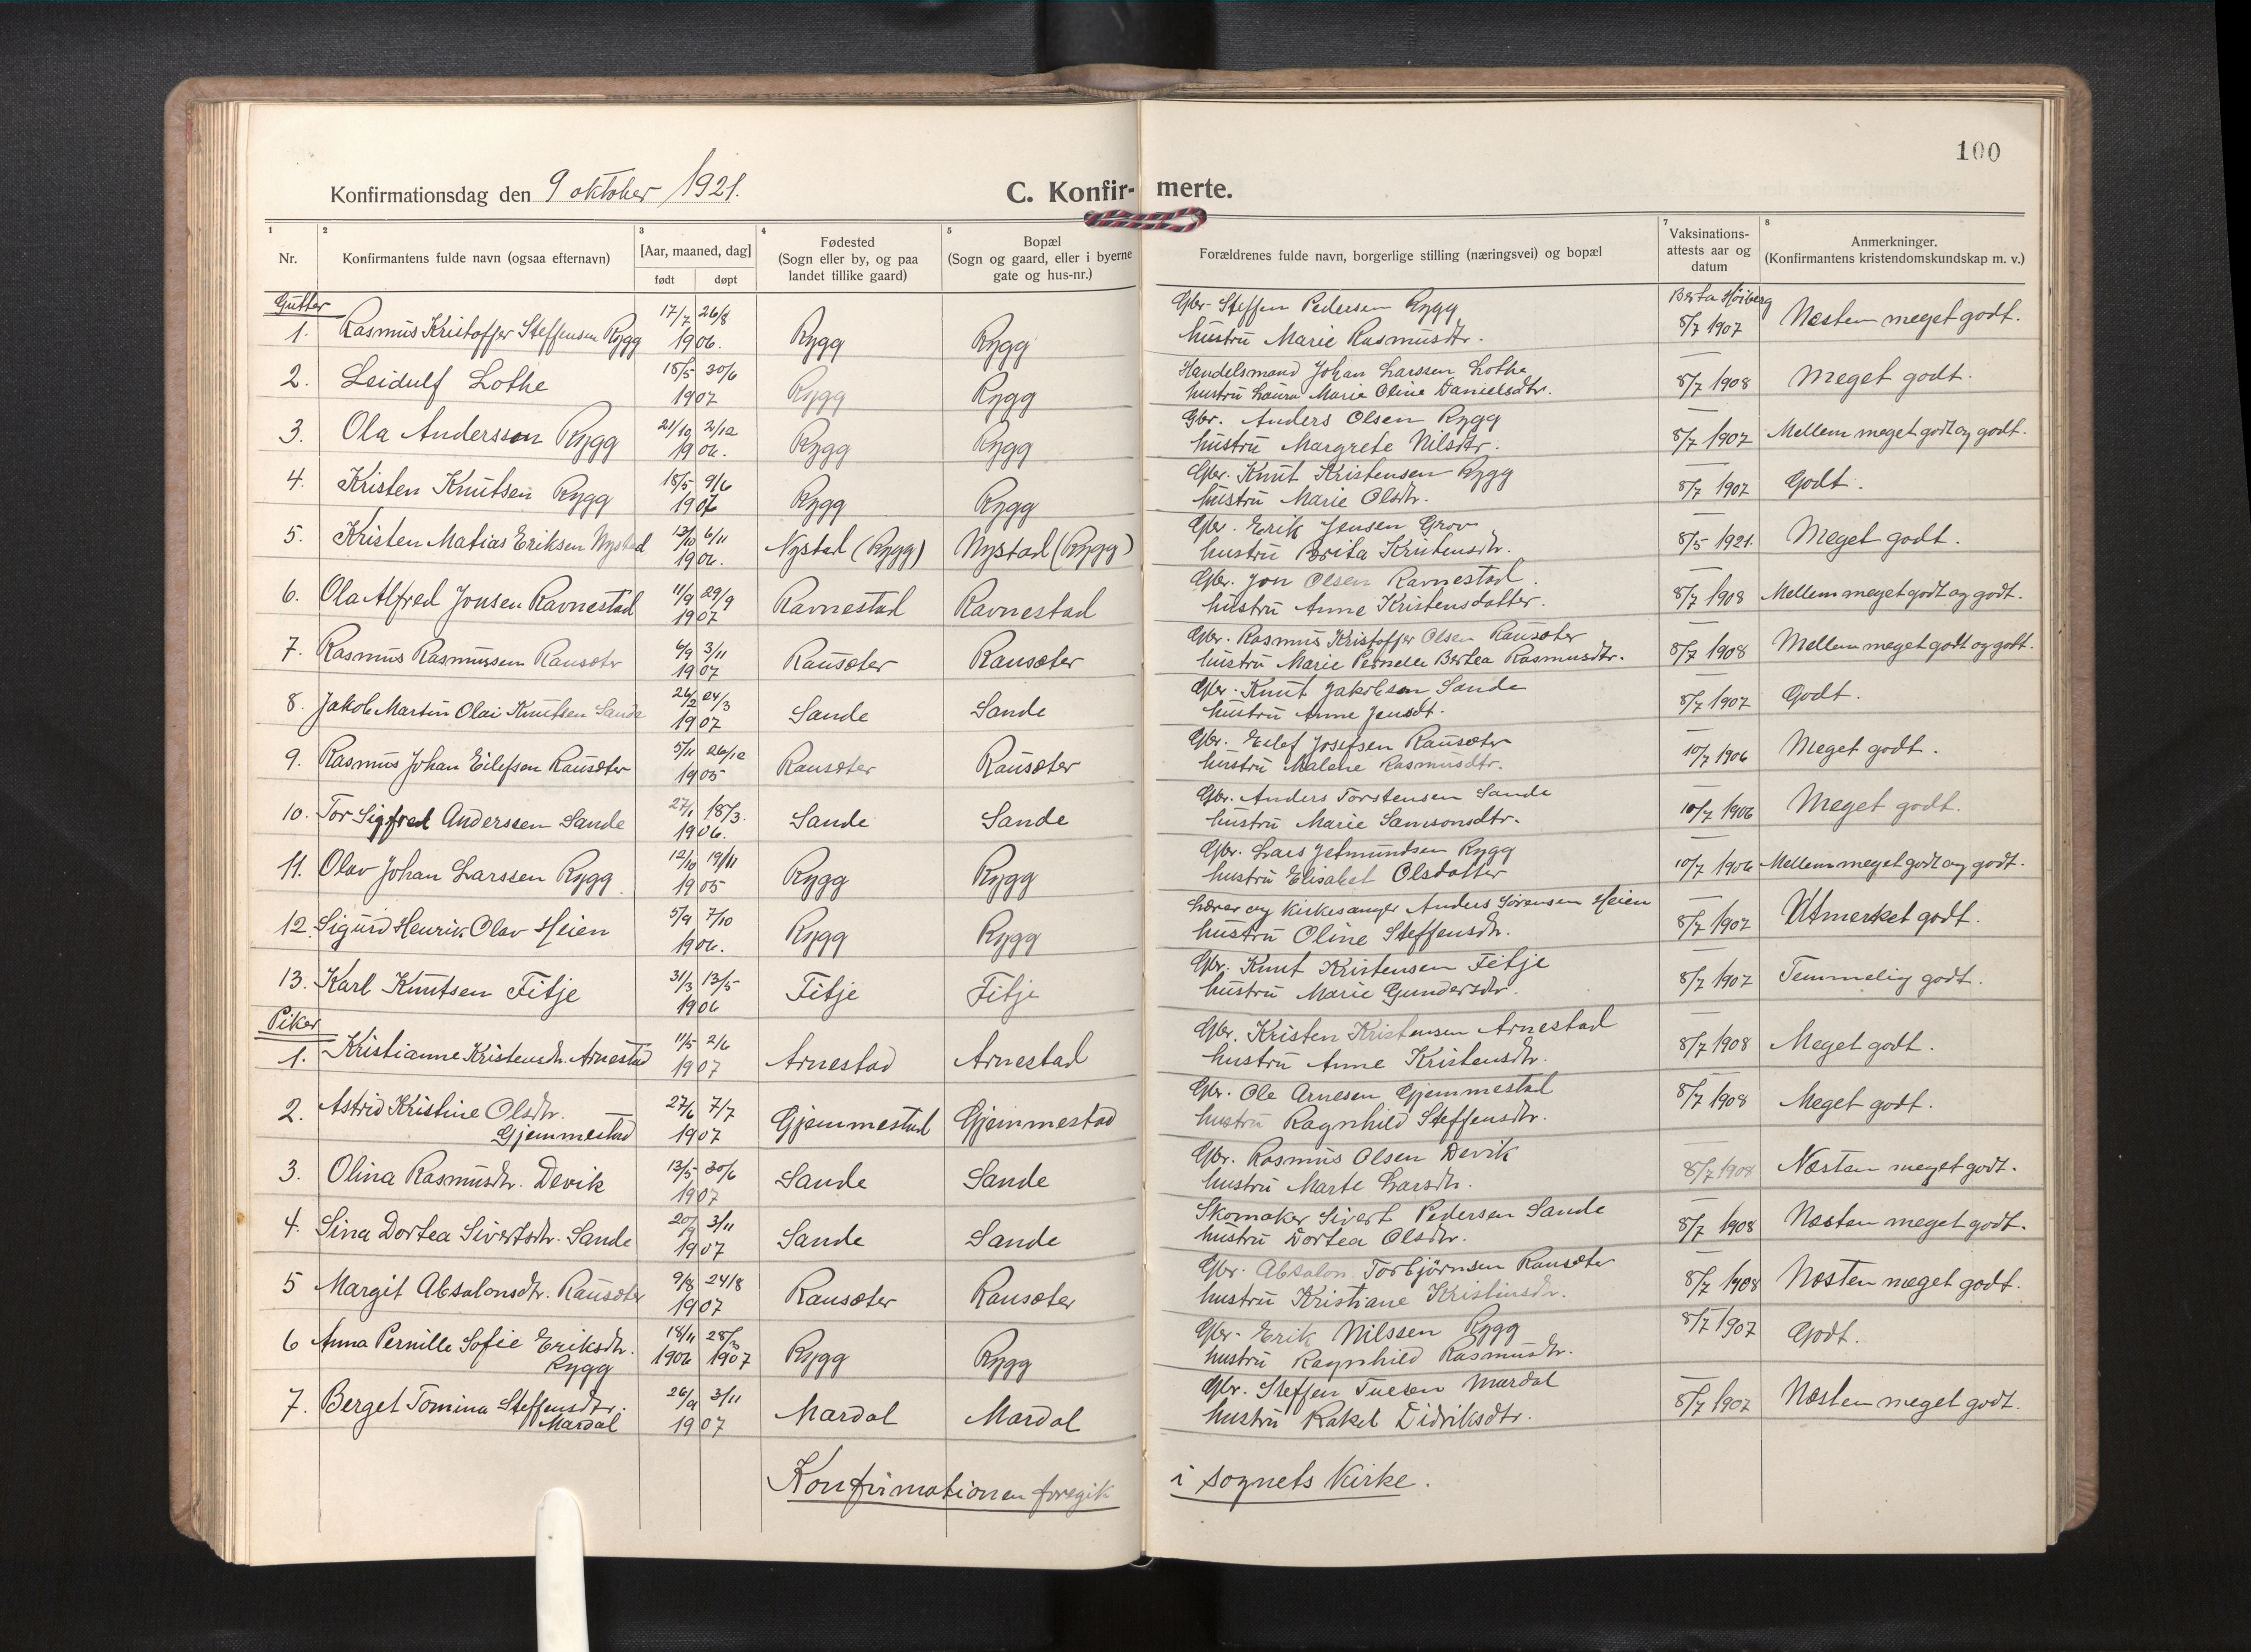 100
Konfirmationsdag den 9 oktober 1921.
C. Konfir- merte.
1 2 3 4 5 7 8
Nr.
Konfirmantens fulde navn (ogsaa efternavn)
[Aar, maaned, dag]
født døpt
Fødested
(Sogn eller by, og paa
landet tillike gaard)
Bopæl
(Sogn og gaard, eller i byerne
gate og hus-nr.)
Forældrenes fulde navn, borgerlige stilling (næringsvei) og bopæl
Vaksinations-
attests aar og
datum
Anmerkninger.
(Konfirmantens kristendomskundskap m. v.)
Gutter
1. Rasmus Kristoffer Steffensen Rygg 17/7 26/8 1906. Rygg Rygg Gbr. Steffen Pedersen Rygg Berta Höiberg 8/7 1907 Næsten meget godt.
hustru Marie Rasmusdtr.
2. Leidulf Lothe 18/5 30/6 1907 Rygg Rygg Handelsmand Johan Larssen Lothe 8/7 1908 Meget godt.
hustru Laura Marie Oline Danielsdtr.
3. Ola Anderssen Rygg 21/10 2/12 1906. Rygg Rygg Gbr. Anders Olsen Rygg 8/7 1907 Mellem meget godt og godt.
hustru Margrete Nilsdtr.
4. Kristen Knutsen Rygg 18/5 9/6 1907 Rygg Rygg Gbr. Knut Kristensen Rygg 8/7 1907 Godt.
hustru Marie Olsdtr.
5. Kristen Matias Eriksen Nystad 13/10 6/11 1906. Nystad (Rygg) Nystad (Rygg) Gbr. Erik Jensen Grov 8/5 1921. Meget godt.
hustru Brita Kristensdtr.
6. Ola Alfred Jonsen Ravnestad 11/9 29/9 1907 Ravnestad Ravnestad Gbr. Jon Olsen Ravnestad. 8/7 1908 Mellem meget godt og godt.
hustru Anne Kristensdatter.
7. Rasmus Rasmussen Rausæter 6/9 3/11 1907 Rausæter Rausæter Gbr. Rasmus Kristoffer Olsen Rausæter 8/7 1908 Mellem meget godt og godt.
hustru Marie Pernelle Bertea Rasmusdtr.
8. Jakob Martin Olai Knutsen Sande 26/2 24/3 1907 Sande Sande Gbr. Knut Jakobsen Sande 8/7 1907 Godt.
hustru Anne Jensdt.
9. Rasmus Johan Eilefsen Rausæter 5/11 26/12 1905 Rausæter Rausæter Gbr. Eilef Josefsen Rausæter 10/7 1906 Meget godt.
hustru Malene Rasmusdtr.
10. Tor Sigfred Anderssen Sande 27/1 18/3. 1906. Sande Sande Gbr. Anders Torstensen Sande 10/7 1906 Meget godt.
hustru Marie Samsonsdtr.
11. Olav Johan Larssen Rygg 12/10 19/11 1905 Rygg Rygg Gbr. Lars Jetmundsen Rygg 10/7 1906 Mellem meget godt og godt.
hustru Elisabet Olsdatter
12. Sigurd Henrik Olav Heien 5/9 7/10 1906. Rygg Rygg Lærer og kirkesanger Anders Sörensen Heien 8/7 1907 Utmerket godt.
hustru Oline Steffensdtr.
13. Karl Knutsen Fitje 31/3 13/5 1906 Fitje Fitje Gbr. Knut Kristensen Fitje 8/7 1907 Temmelig godt.
hustru Marie Gundersdtr.
Piker
1. Kristianne Kristensdtr. Arnestad 11/5 2/6 1907 Arnestad Arnestad Gbr. Kristen Kristensen Arnestad 8/7 1908 Meget godt.
hustru Anne Kristensdtr.
2. Astrid Kristine Olsdtr. Gjemmestad 27/6 7/7 1907 Gjemmestad Gjemmestad Gbr. Ole Arnesen Gjemmestad 8/7 1908 Meget godt.
hustru Ragnhild Steffensdtr.
3. Olina Rasmusdtr. Devik 13/5 30/6 1907 Sande Sande Gbr. Rasmus Olsen Devik 8/7 1908 Næsten meget godt.
hustru Marte Larsdtr.
4. Sina Dortea Sivertsdtr. Sande 20/9 3/11 1907 Sande Sande Skomaker Sivert Pedersen Sande 8/7 1908 Næsten meget godt.
hustru Dortea Olsdtr.
5 Margit Absalonsdtr. Rausæter 9/8 24/8 1907 Rausæter Rausæter Gbr. Absalon Torbjörnsen Rausæter 8/7 1908 Næsten meget godt.
hustru Kristiane Kristinsdtr.
6 Anna Pernille Sofie Eriksdtr. Rygg 18/11 1906 1907 Rygg Rygg Gbr. Erik Nilssen Rygg 8/7 1907 Godt.
hustru Ragnhild Rasmusdtr.
7. Berget Tomina Steffensdtr. Mardal 26/9 3/11 1907 Mardal Mardal Gbr. Steffen Tuesen Mardal 8/7 1907 Næsten meget godt.
hustru Rakel Didriksdtr.
Konfirmationen foregik i sognets kirke.